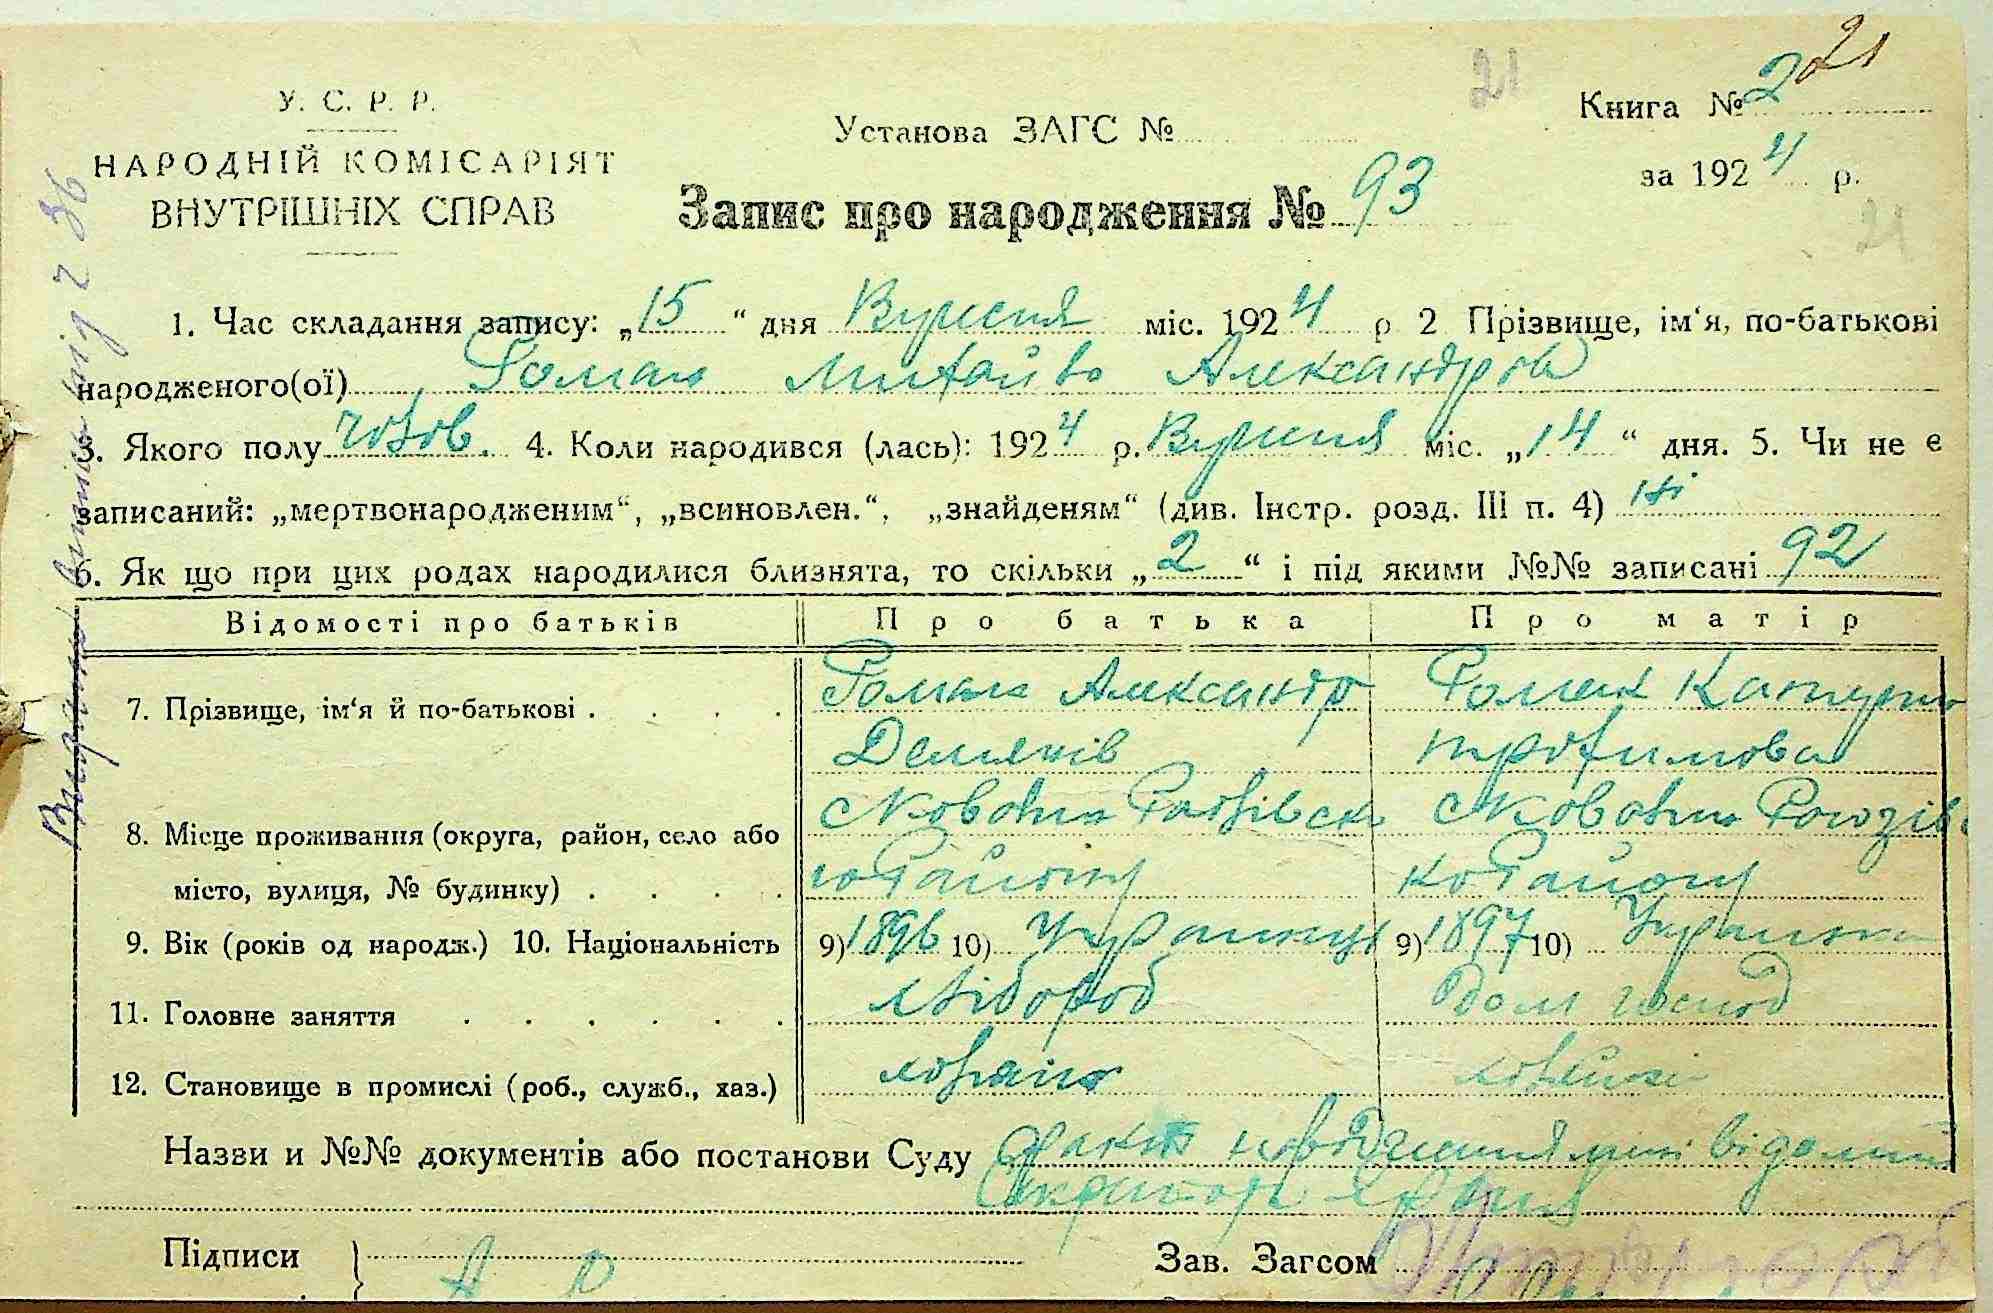 21
21
У. С. Р. Р.
Книга № 2
Установа ЗАГС №
НАРОДНІЙ КОМІСАРІЯТ
за 192 4 р.
ВНУТРІШНІХ СПРАВ
Запис про народження № 93
21
1. Час складання запису: „15“ дня Вересня міс. 1924 р 2 Прізвище, ім‘я, по-батькові
народженого(ої) Роман Михайло Александров
3. Якого полу чолов. 4. Коли народився (лась): 1924 р. Вересня міс. „14“ дня. 5. Чи не є
записаний: „мертвонародженим“, „всиновлен.“, „знайденям“ (див. Інстр. розд. III п. 4) Ні
6. Як що при цих родах народилися близнята, то скільки „2“ і під якими №№ записані 92
Відомості про батьків Про батька Про матір
7. Прізвище, ім‘я й по-батькові . . . . Роман Александр
Демянів
Роман
Трофимова
8. Місце проживання (округа, район, село або
місто, вулиця, № будинку) . . . .
району
району
9. Вік (років од народж.) 10. Національність 9) 1896 10) Украинець 9) 1897 10) Украинка
11. Головне заняття . . . . . . хлібороб Дом господ
12. Становище в промислі (роб., служб., хаз.) хозяін
Назви и №№ документів або постанови Суду Факт народження мені відомий
Підписи
Зав. Загсом